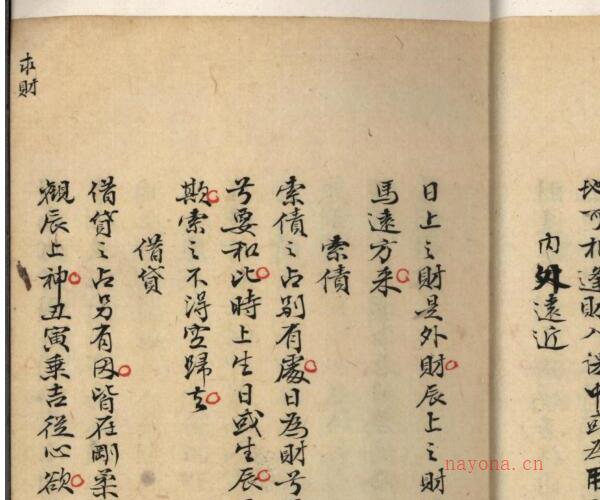 地可相逢財入課中
內外遠近
日上之財是外財辰上之財
馬遠方来
索債
索債之占別有處日為財
号要和比時上生日或生辰
欺索之不得空歸去
借貸
借貸之占另有因皆在剛柔
觀辰上神丑寅乗吉從心欲
求財
nayona.cn